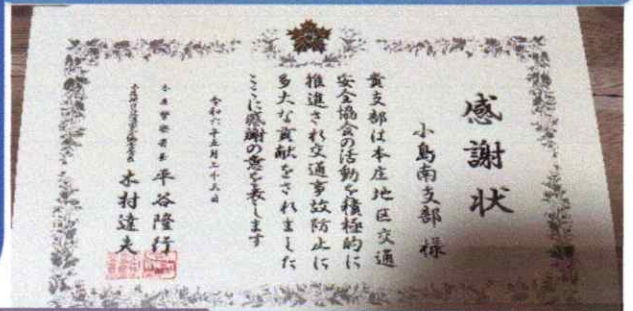 感謝状
小島南支部 様
貴支部は本庄地区交通
安全協会の活動を積極的に
推進され交通事故防止に
多大な貢献をされました
ここに感謝の意を表します
令和六年五月二十五日
本庄警察署長 平谷隆行
本庄地区交通安全協会会長 木村達夫